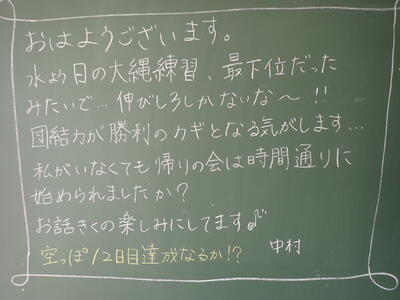 おはようございます。
水よう日の大縄練習、最下位だった
みたいで…伸びしろしかないな〜!!
団結力が勝利のカギとなる気がします…
私がいなくても帰りの会は時間通りに
始められましたか?
お話きくの楽しみにしてます♪
空っぽ12日目達成なるか!? 中村